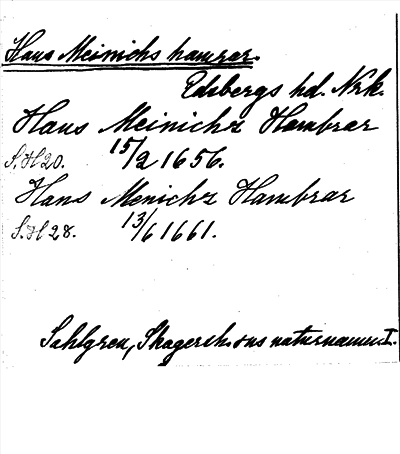 Hans Meinichs hamrar.
Edsbergs hd. Nrk.
Hans Meinichz Hambrar
S.H 20. 15/2 1656.
Hans Menichz Hambrar
S.H 28. 13/6 1661.
Sahlgren, Skagersh. sns naturnamn. I.